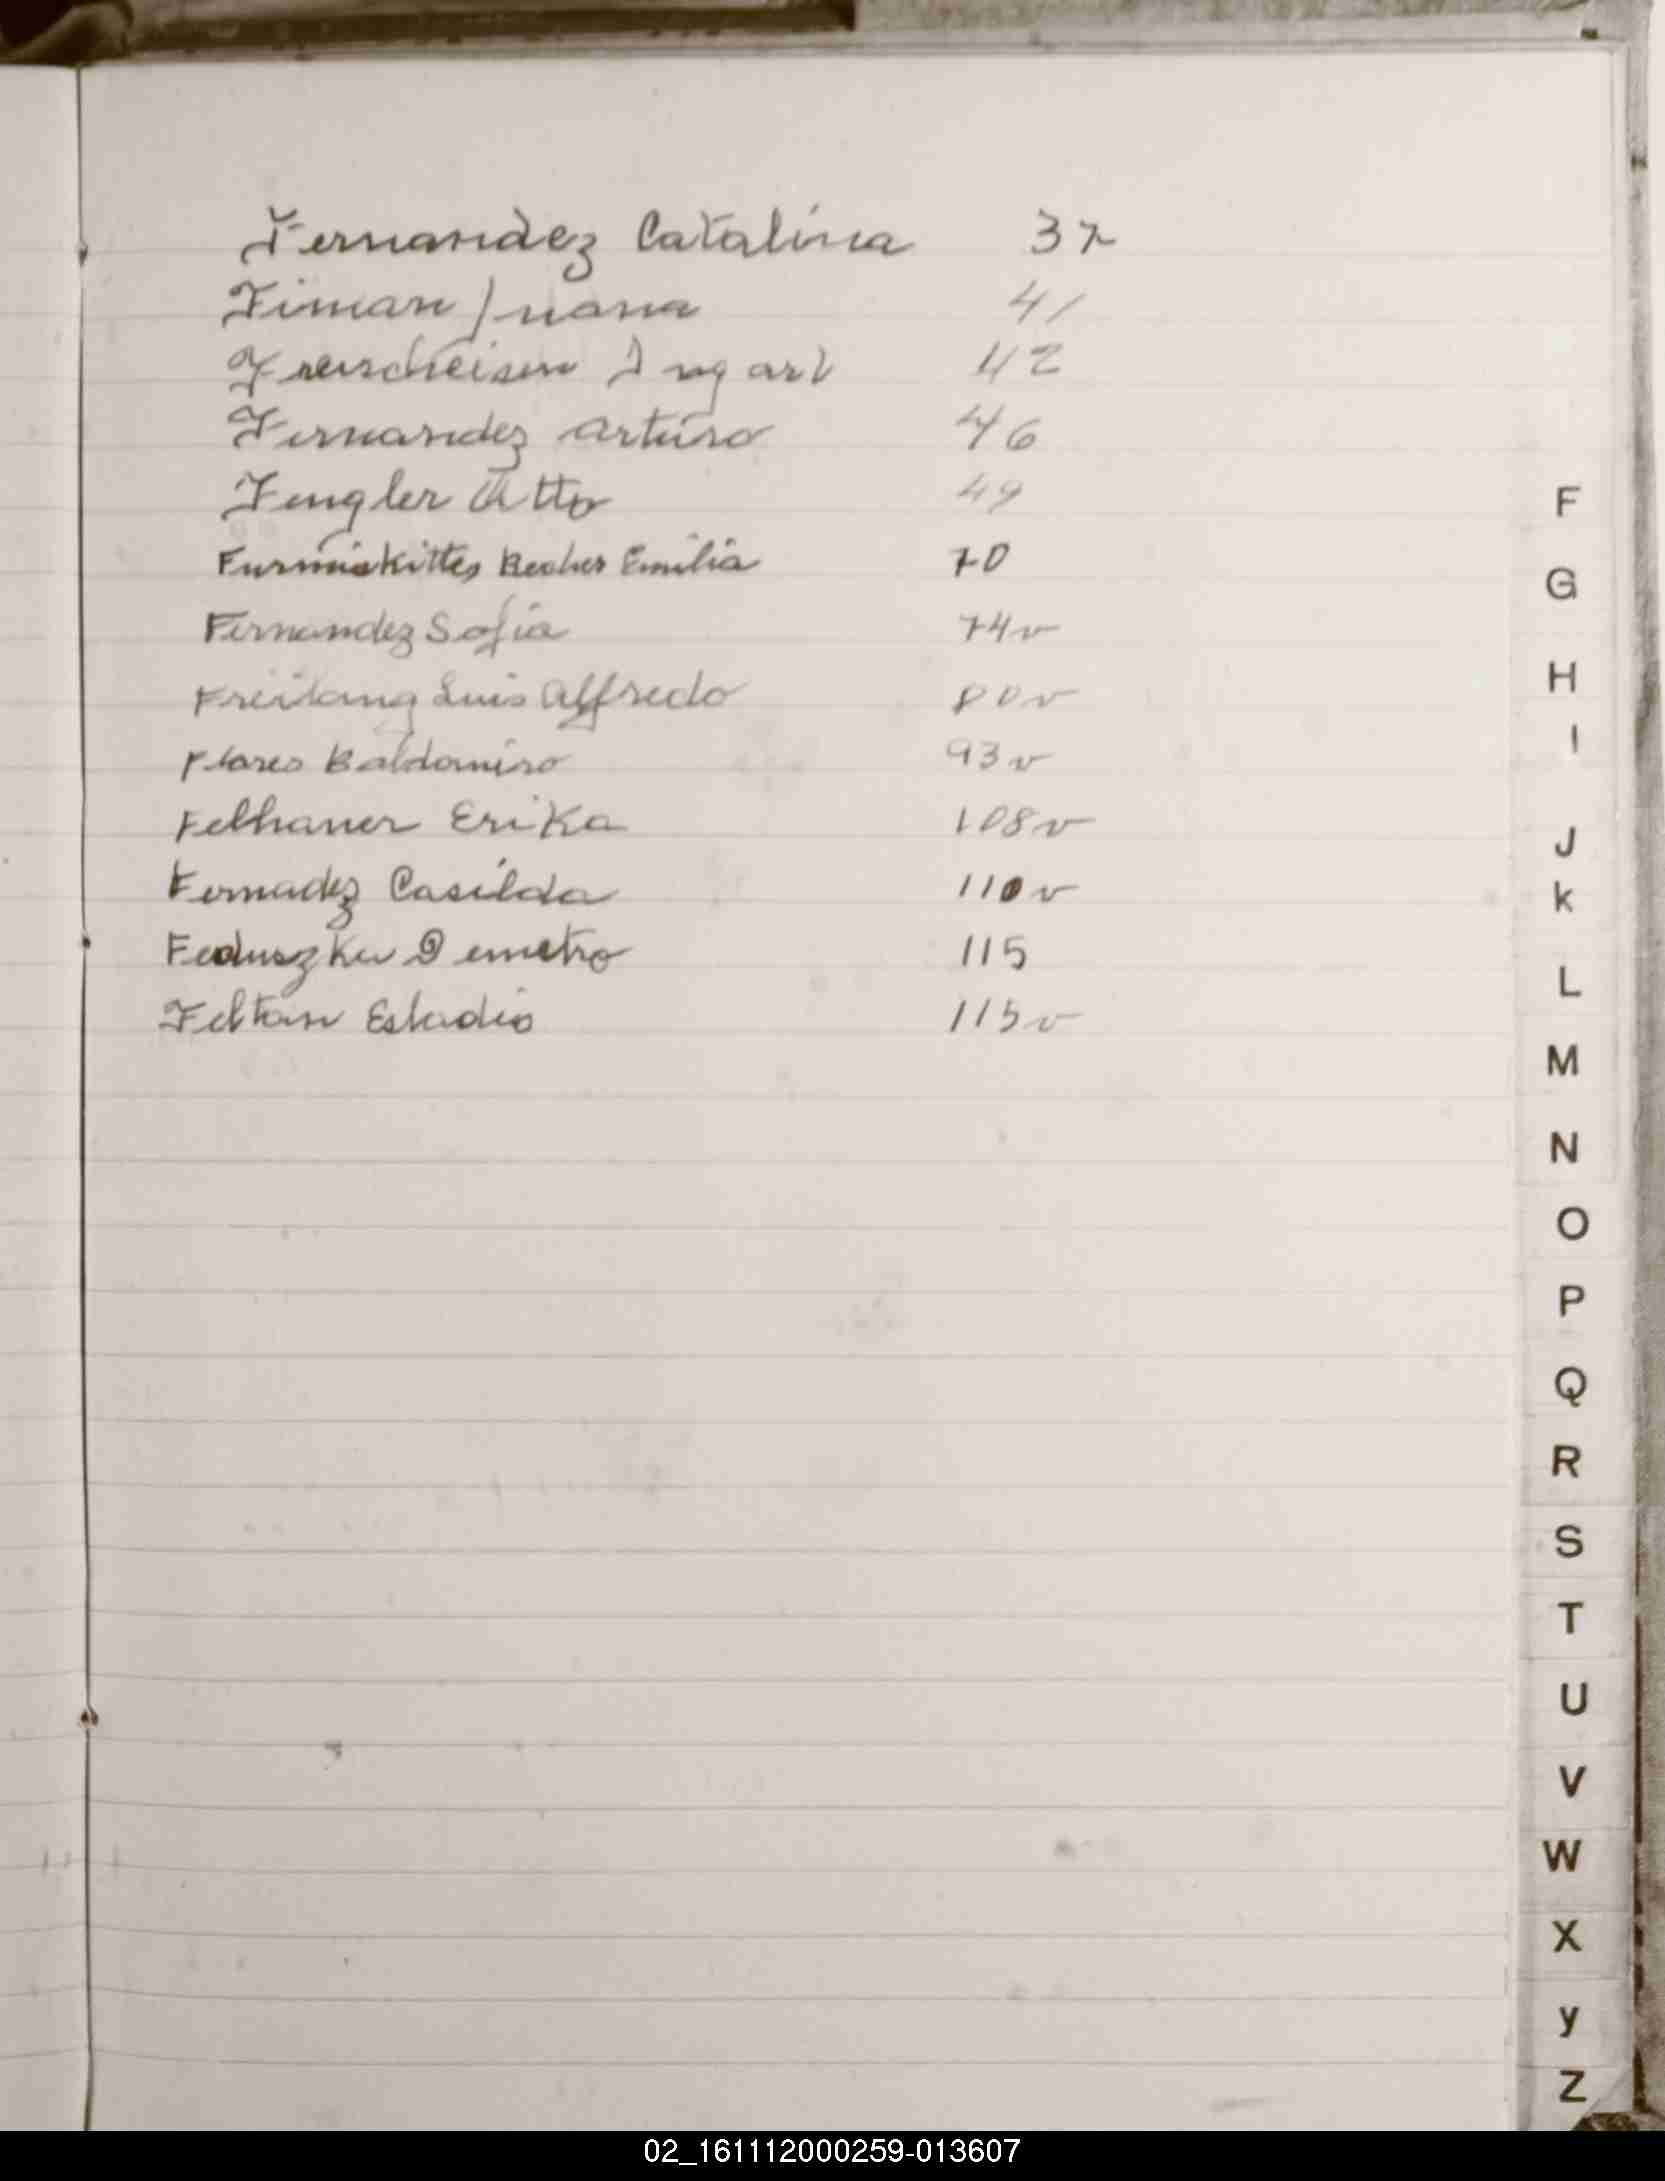 Fernandez Catalina 37
Timan Juana 41
Ingar 42
Fernandez Arturo 46
Fengler Otto 49
Becher Emilia 70
Fernandez Sofia 74v
Freilang Luis Alffredo 80v
Flores Baldomiro 93v
Felhaner Erika 108v
Fernadez Casilda 110v
Demetro 115
Feltan Esladio 115v
F
G
H
I
J
K
L
M
N
O
P
Q
R
S
T
U
V
W
X
y
Z
02_161112000259-013607